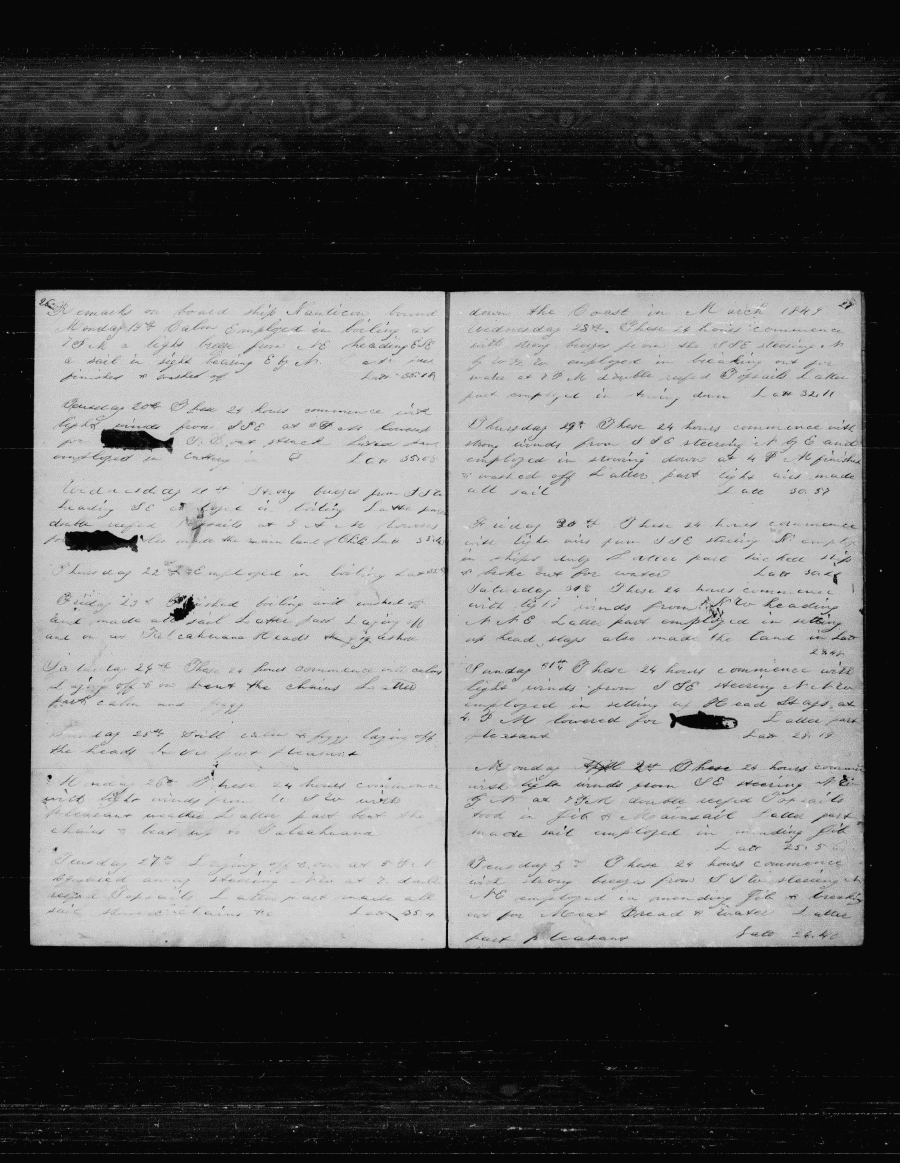 26
Remarks on board ship Nauticon bound
Monday 19th Calm Employed in boiling at
7 P M a light breeze from NE heading ESE
a sail in sight bearing E by N
finished & washed off Latt 35.18
Tuesday 20th These 24 hours commence with
light winds from SSE at PM lowered
for struck
employed in cutting in Latt 35.05
Wednesday 21st Strong breezes from SSE
heading SE employed in boiling Latter part
double reefed Topsails at 5 A M lowered
for also made the main land of Chile Latt
Thursday 22d Employed in boiling Latt
Friday 23d Finished boiling and washed off
and made all sail Latter part Laying off
and on at Talcahuana Heads foggy ashore
Saturday 24th These 24 hours commence with calms
Laying off & on bent the chains Latter
part calm and foggy
Sunday 25th Still calm & foggy laying off
the heads Latter part pleasant
Monday 26th These 24 hours commence
with light winds from SW with
pleasant weather Latter part bent the
chains & beat up to Talcahuana
Tuesday 27th Laying off & on at 5 P M
away steering NW at 7 double
reefed Topsails Latter part made all
sail chains &c Latt 35.4
27
down the Coast in March 1849
Wednesday 28th. These 24 hours commence
with strong breezes from the SSE steering N
by W employed in breaking out for
water at 7 P M double reefed Topsails Latter
part employed in stowing down Latt 32.11
Thursday 29th These 24 hours commence with
strong winds from SSE steering N by E and
employed in stowing down at 4 P M finished
& washed off Latter part light airs made
all sail Latt 30.57
Friday 30th These 24 hours commence
with light airs from SSE steering N employed
in ships duty Latter part tacked ship
& broke out for water Latt
Saturday 31st These 24 hours commence
with light winds from NW heading
NNE Latter part employed in setting
up head stays also made the land in Latt
28.48
Sunday 1st These 24 hours commence with
light winds from SSE steering NNW
employed in setting up Head Stays at
4 P M lowered for Latter part
pleasant Latt 28.19
Monday 2nd These 24 hours commence
with light winds from SE steering N
by N at 7 P M double reefed Topsails
took in Jib & Mainsail Latter part
made sail employed in mending Jib
Latt 25.5
Tuesday 3d These 24 hours commence
with strong breezes from SSE steering
NE employed in mending Jib & breaking
out for Meat Bread & Water Latter
part pleasant Latt 24.40